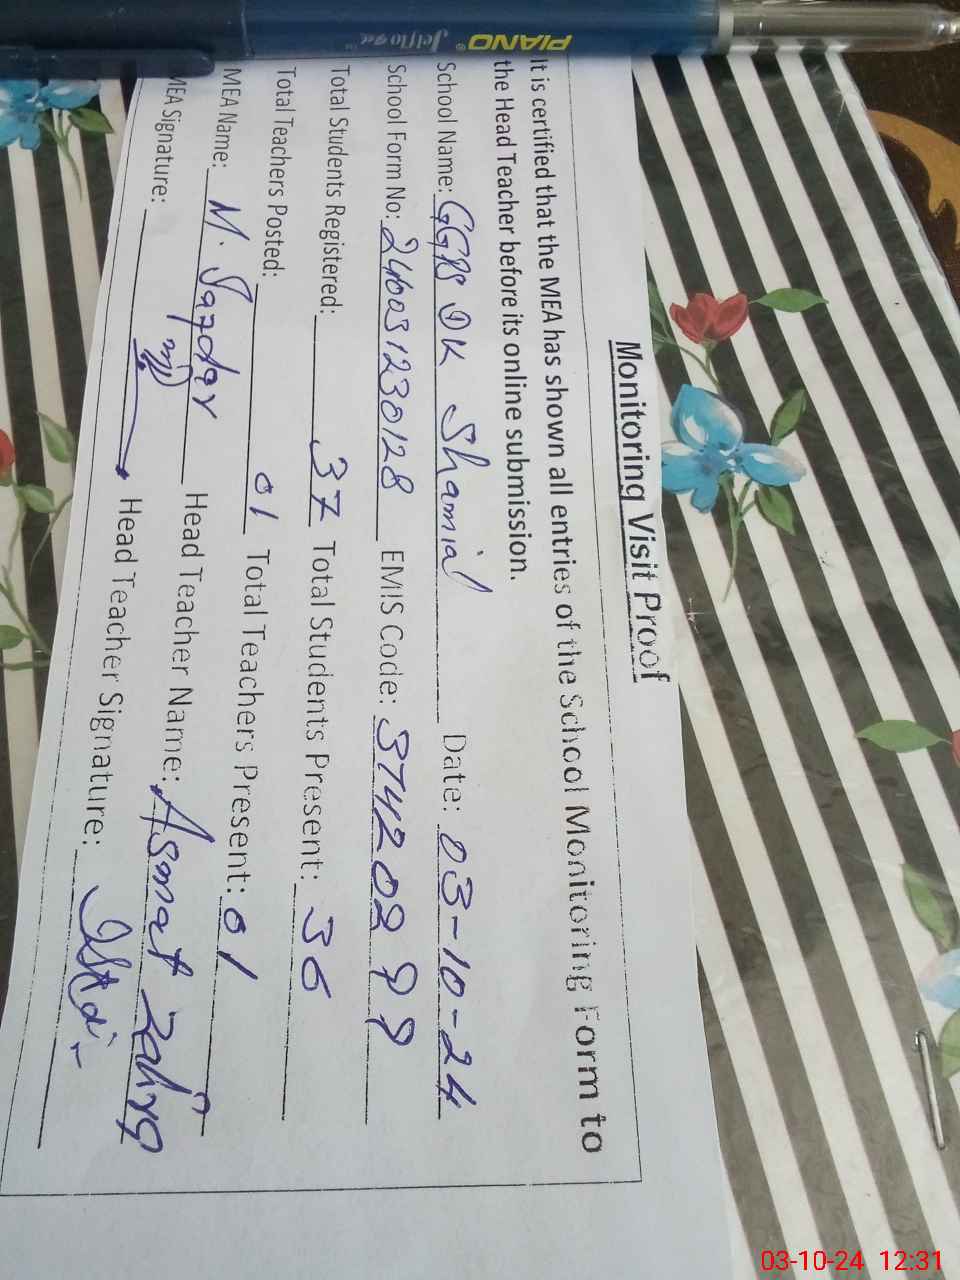 PIANO® Jelflo gel
Monitoring Visit Proof
It is certified that the MEA has shown all entries of the School Monitoring Form to
the Head Teacher before its online submission.
School Name: GGPS DK Shamial Date: 03-10-24
School Form No: 240031230128 EMIS Code:
Total Students Registered: 37 Total Students Present: 36
Total Teachers Posted: 01 Total Teachers Present: 01
MEA Name: M. Safdar Head Teacher Name: Asmat
MEA Signature: Head Teacher Signature:
03-10-24 12:31